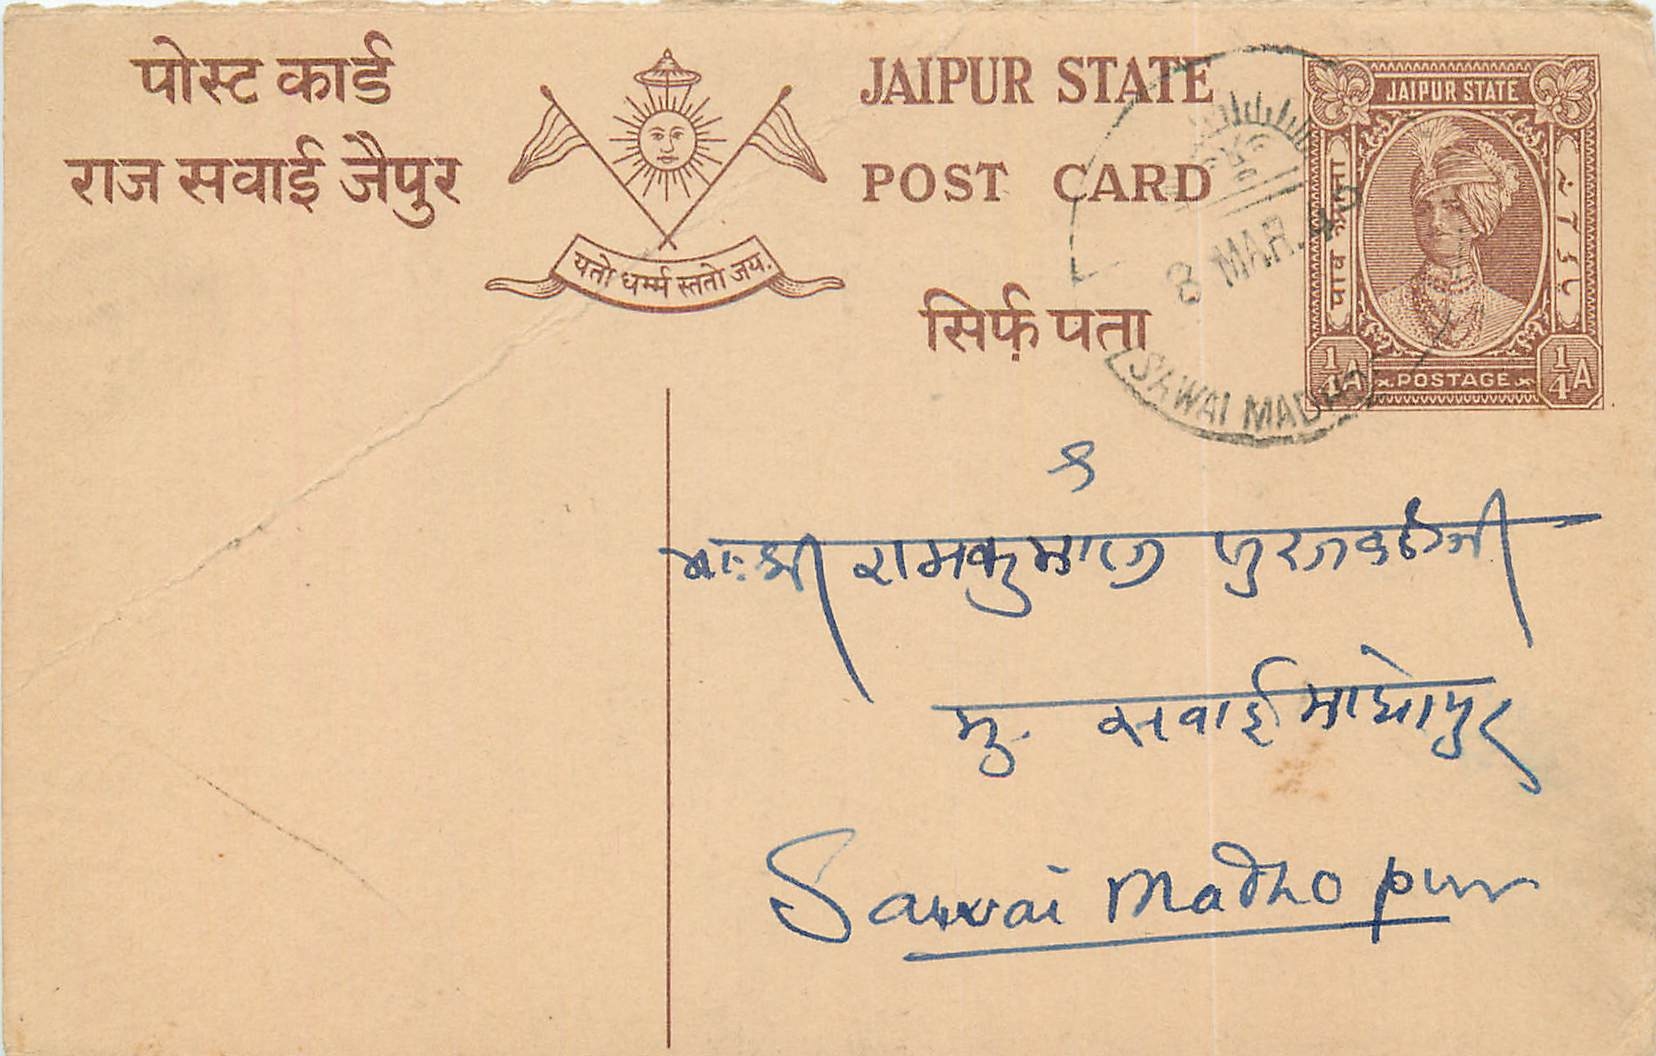 पोस्ट कार्ड
राज सवाई जैपुर
यतो धर्म्म स्ततो जय:
JAIPUR STATE
POST CARD
सिर्फ़ पता
JAIPUR STATE
पाव
1/4 A POSTAGE 1/4 A
8 MAR. 4
SAWAI MADHO
श्री रामकुमार
मु. सवाई माधोपुर
Sawai Madho pur